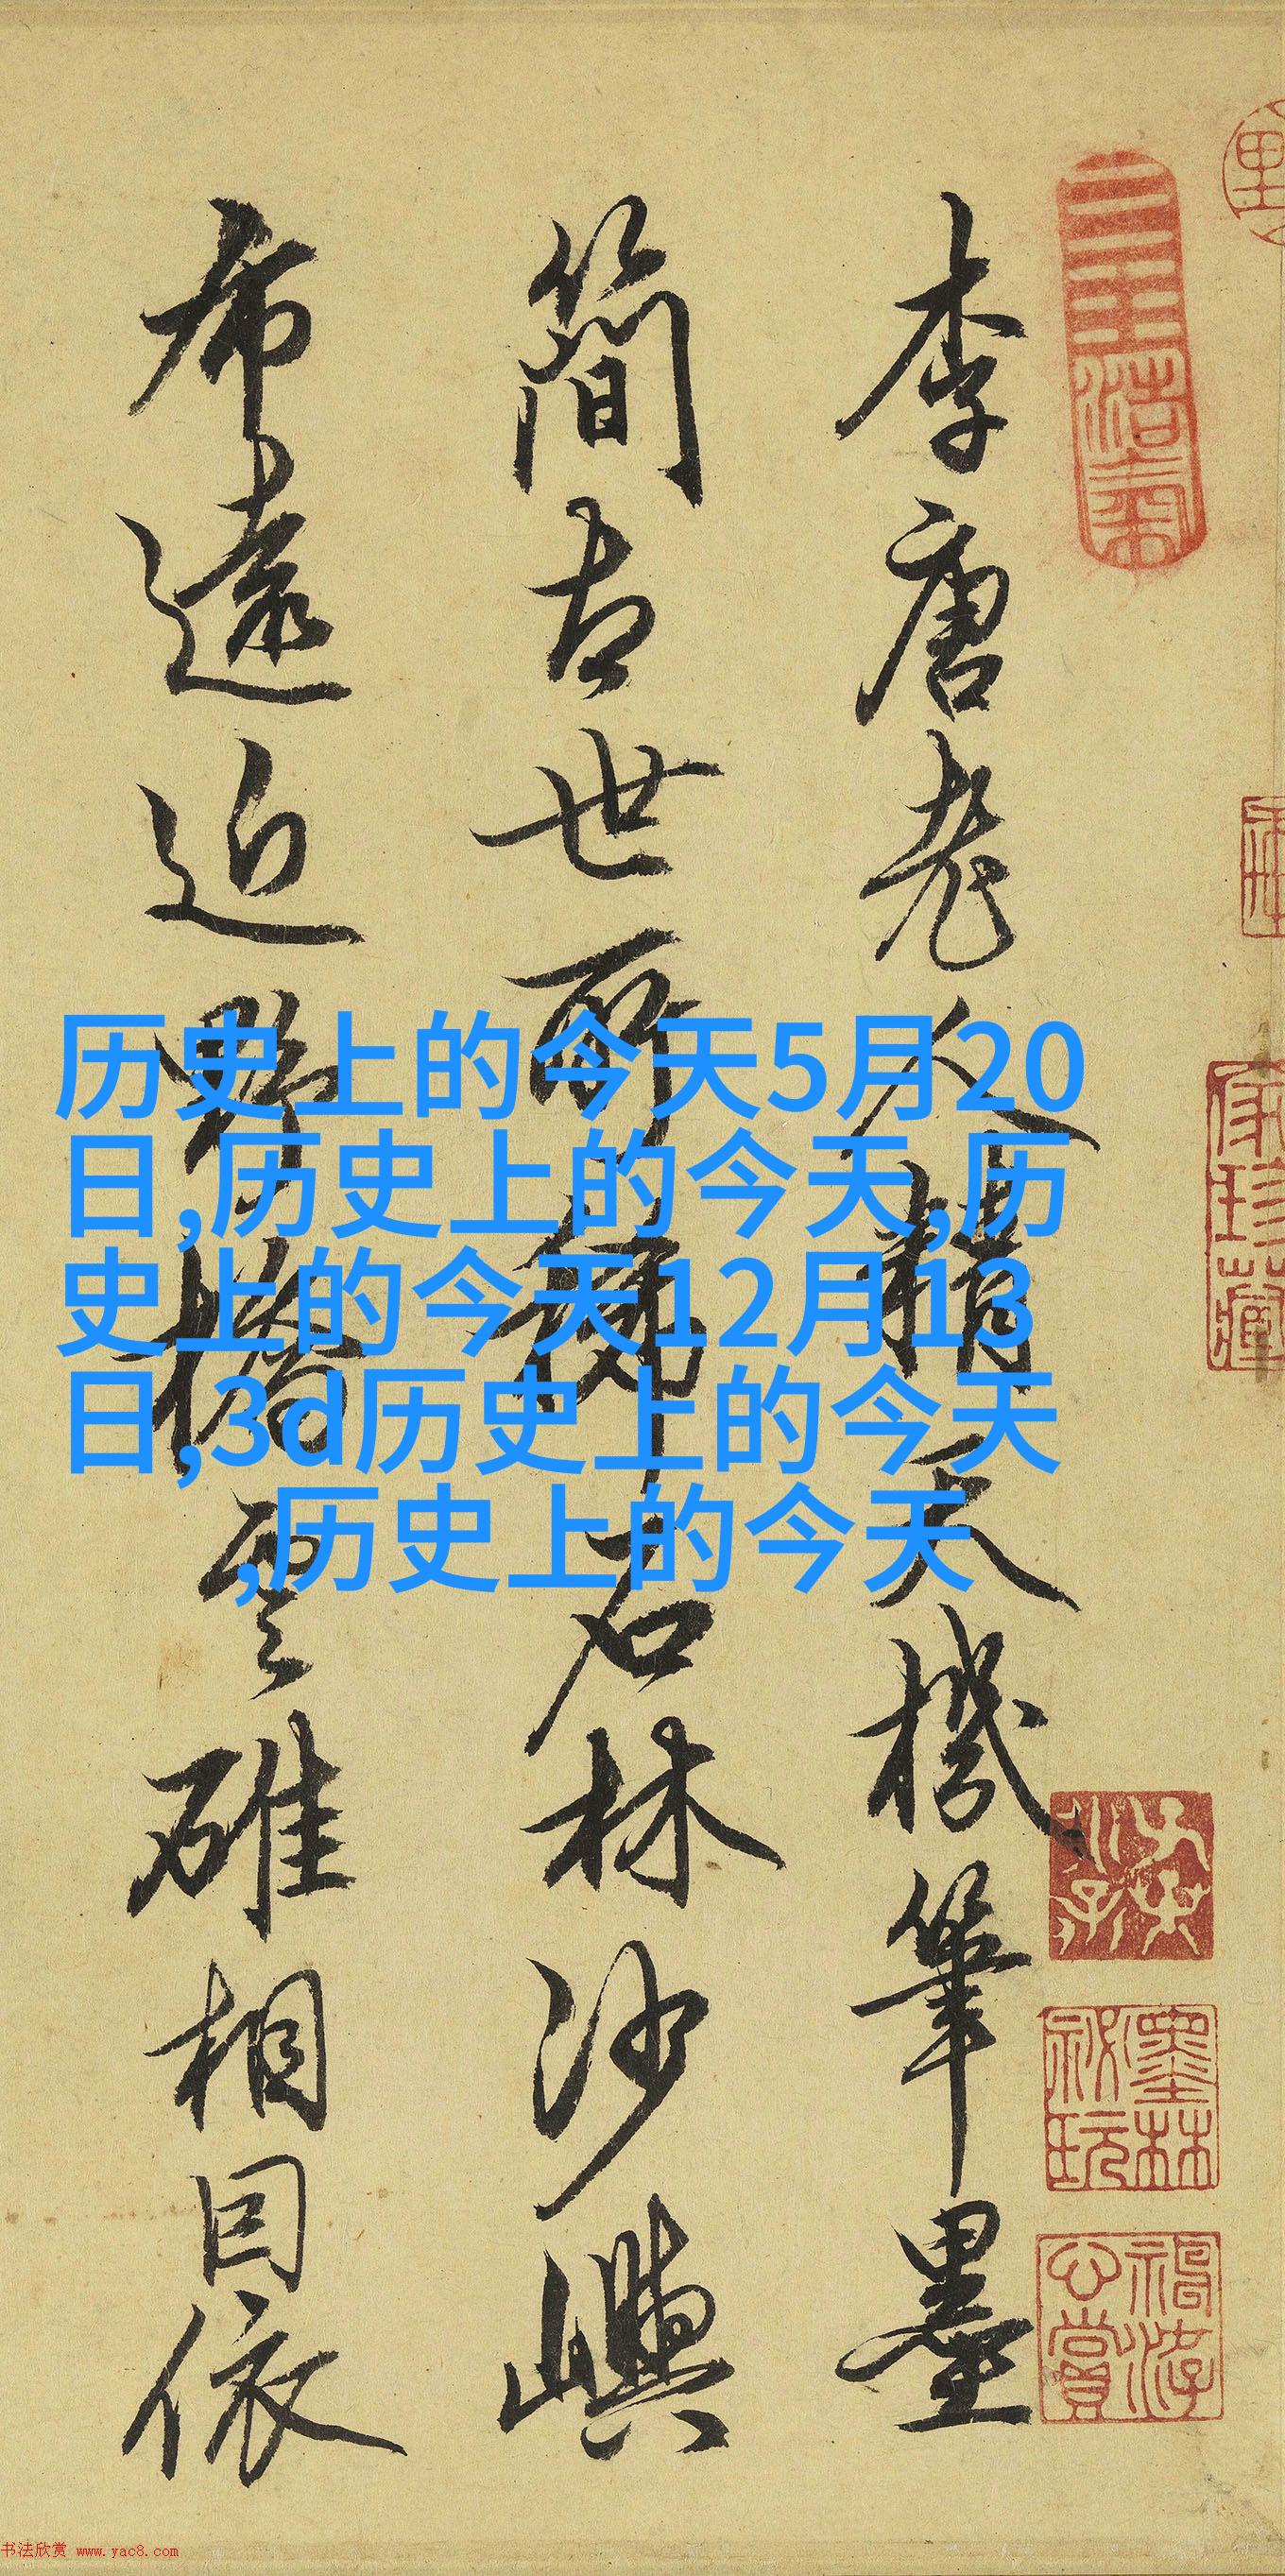 李唐老人精天機筆墨
簡古世所稀石林沙嶼
布遠近野橋雲碓相因依
历史上的今天5月20
日,历史上的今天,历
史上的今天12月13
日,3d历史上的今天
,历史上的今天
墨林祕玩
家珍藏
书法欣赏 www.yac8.com